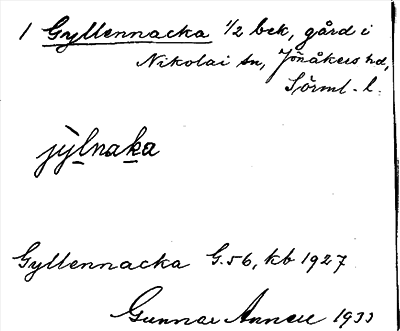 1 Gyllennacka 1/2 bck, gård i
Nikolai sn, Jönåkers hd,
Sörml. l.
jỳlnaka
Gyllennacka G.56, kb 1927
Gunnar 1933